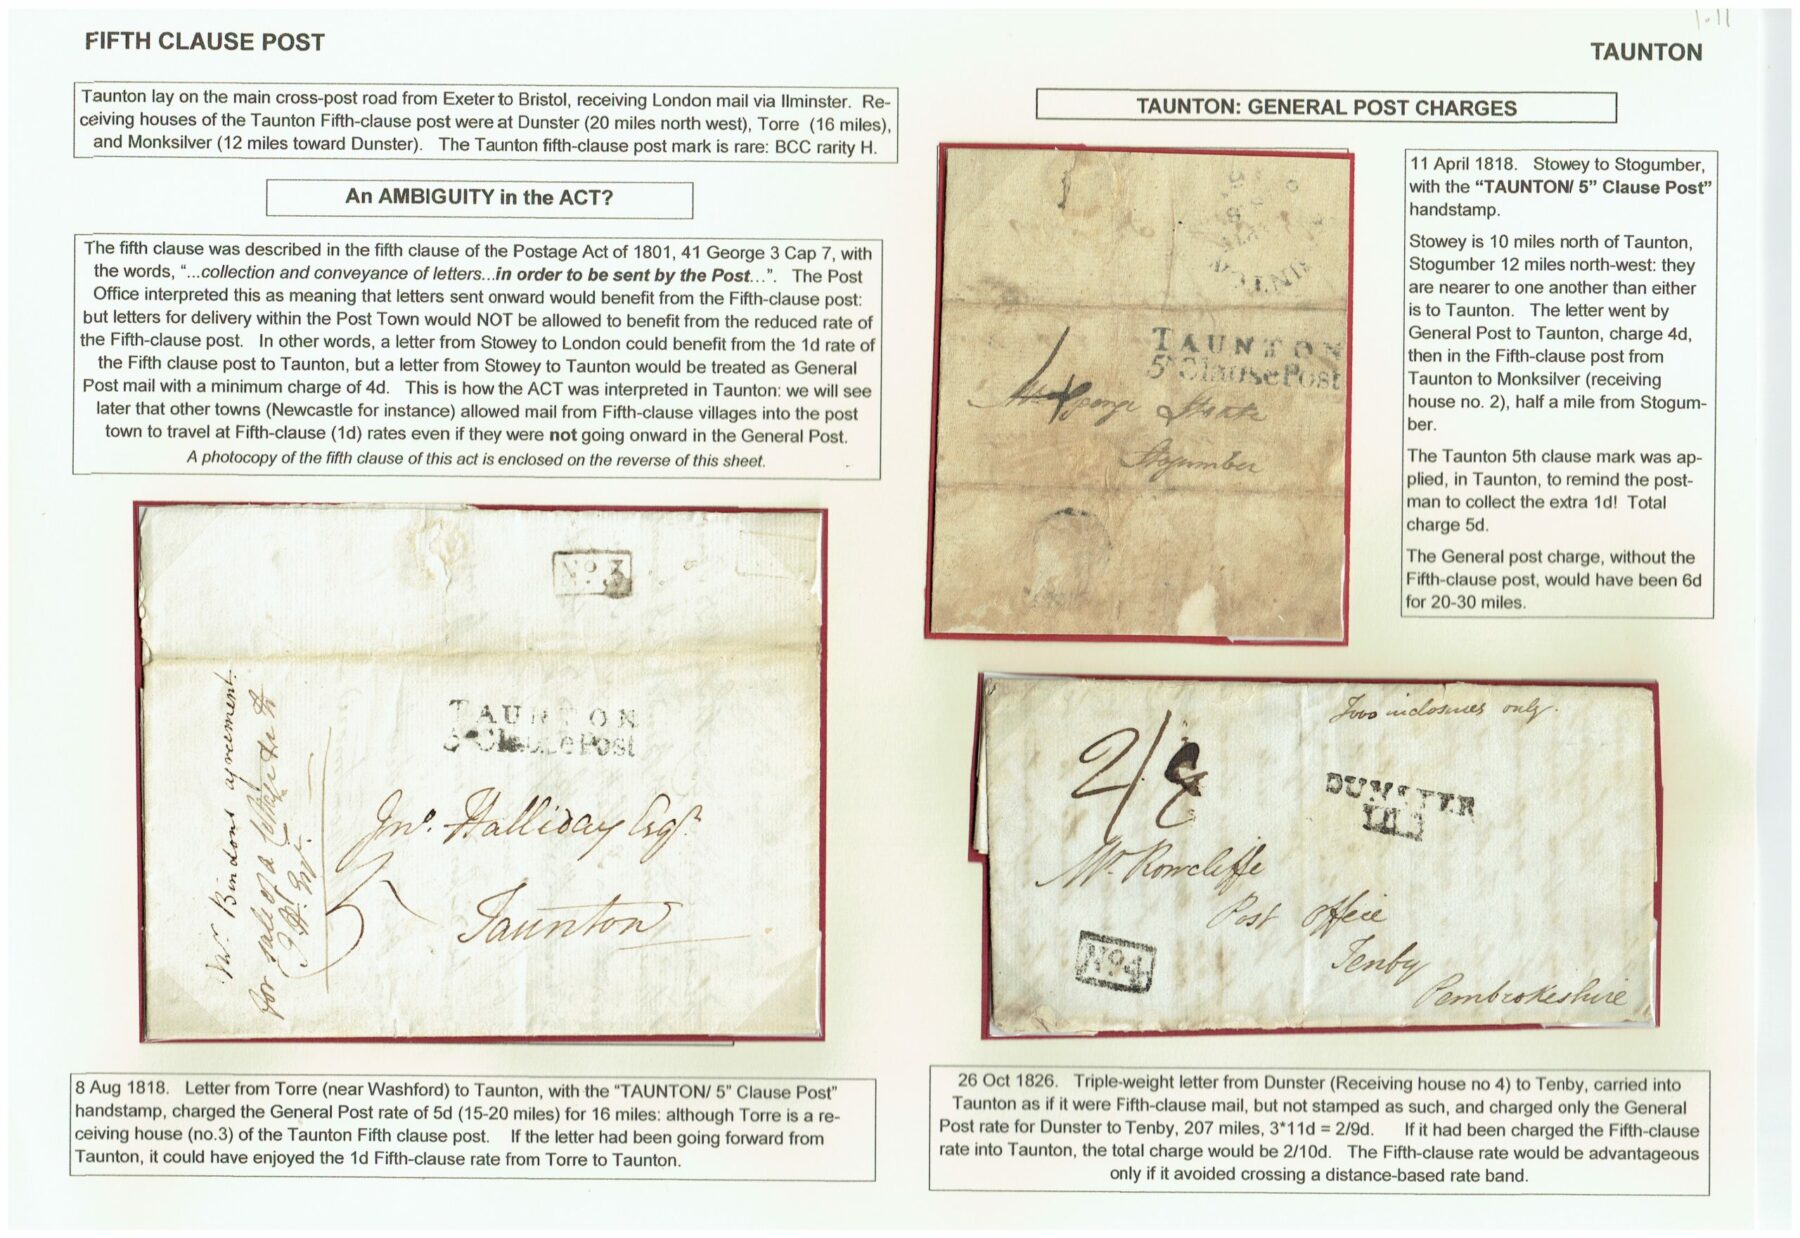 FIFTH CLAUSE POST
TAUNTON
Taunton lay on the main cross-post road from Exeter to Bristol, receiving London mail via Ilminster. Re-
ceiving houses of the Taunton Fifth-clause post were at Dunster (20 miles north west), Torre (16 miles),
and Monksilver (12 miles toward Dunster). The Taunton fifth-clause post mark is rare: BCC rarity H.
An AMBIGUITY in the ACT?
The fifth clause was described in the fifth clause of the Postage Act of 1801, 41 George 3 Cap 7, with
the words, “...collection and conveyance of letters...in order to be sent by the Post...”. The Post
Office interpreted this as meaning that letters sent onward would benefit from the Fifth-clause post:
but letters for delivery within the Post Town would NOT be allowed to benefit from the reduced rate of
the Fifth-clause post. In other words, a letter from Stowey to London could benefit from the 1d rate of
the Fifth clause post to Taunton, but a letter from Stowey to Taunton would be treated as General
Post mail with a minimum charge of 4d. This is how the ACT was interpreted in Taunton: we will see
later that other towns (Newcastle for instance) allowed mail from Fifth-clause villages into the post
town to travel at Fifth-clause (1d) rates even if they were not going onward in the General Post.
A photocopy of the fifth clause of this act is enclosed on the reverse of this sheet.
No. 3
Mr. Bindons agreement
for sale of a
TAUNTON
5th Clause Post
Jno. Halliday Esqr.
5
Taunton
8 Aug 1818. Letter from Torre (near Washford) to Taunton, with the “TAUNTON/ 5” Clause Post”
handstamp, charged the General Post rate of 5d (15-20 miles) for 16 miles: although Torre is a re-
ceiving house (no.3) of the Taunton Fifth clause post. If the letter had been going forward from
Taunton, it could have enjoyed the 1d Fifth-clause rate from Torre to Taunton.
TAUNTON: GENERAL POST CHARGES
TAUNTON
5th Clause Post
4
Mr George
Stogumber
11 April 1818. Stowey to Stogumber,
with the “TAUNTON/ 5” Clause Post”
handstamp.
Stowey is 10 miles north of Taunton,
Stogumber 12 miles north-west: they
are nearer to one another than either
is to Taunton. The letter went by
General Post to Taunton, charge 4d,
then in the Fifth-clause post from
Taunton to Monksilver (receiving
house no. 2), half a mile from Stogum-
ber.
The Taunton 5th clause mark was ap-
plied, in Taunton, to remind the post-
man to collect the extra 1d! Total
charge 5d.
The General post charge, without the
Fifth-clause post, would have been 6d
for 20-30 miles.
Two inclosures only.
2/
DUNSTER
Mr. Rowcliffe
Post Office
Tenby
Pembrokeshire
No. 4
26 Oct 1826. Triple-weight letter from Dunster (Receiving house no 4) to Tenby, carried into
Taunton as if it were Fifth-clause mail, but not stamped as such, and charged only the General
Post rate for Dunster to Tenby, 207 miles, 3*11d = 2/9d. If it had been charged the Fifth-clause
rate into Taunton, the total charge would be 2/10d. The Fifth-clause rate would be advantageous
only if it avoided crossing a distance-based rate band.